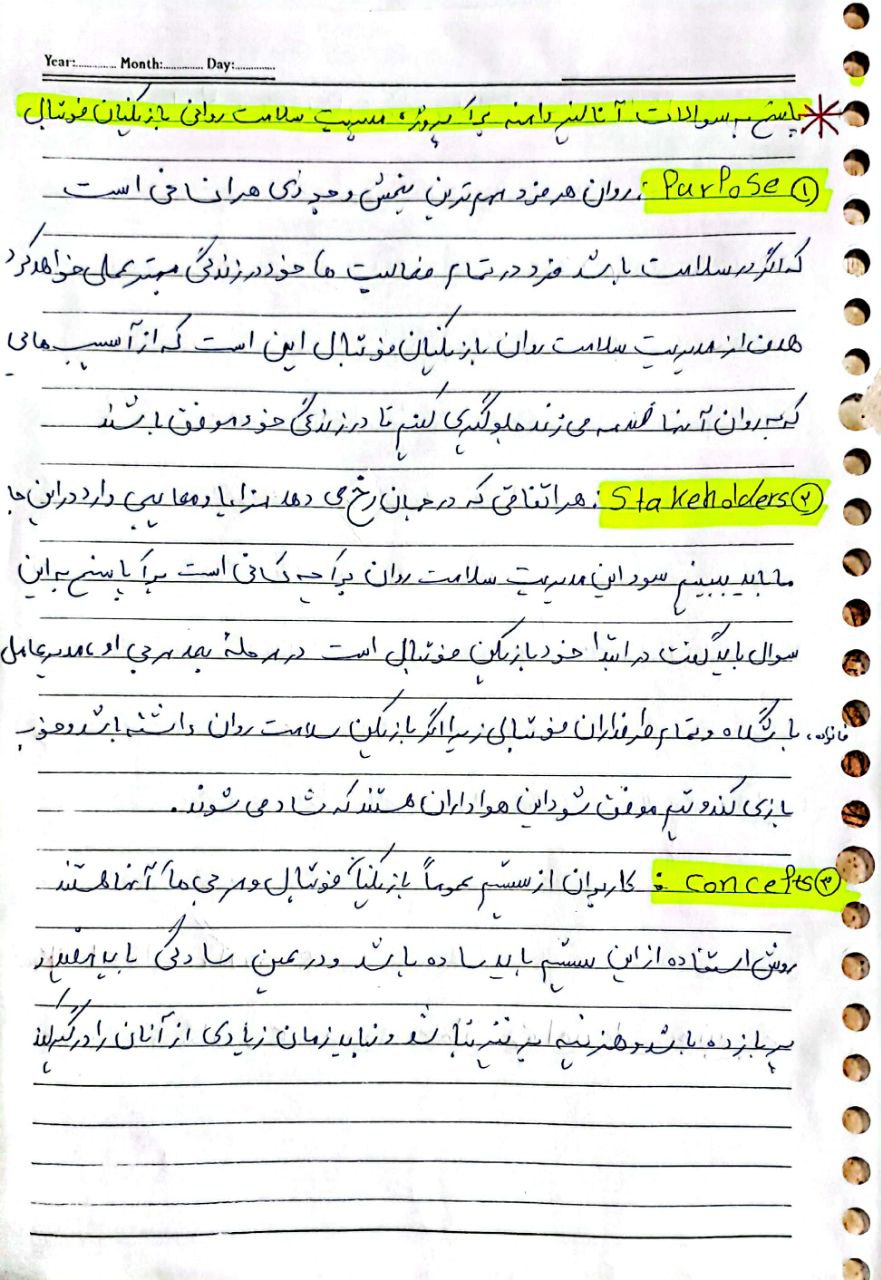 Year:............ Month:............ Day:............
پاسخ به سوالات آنالیز دامنه برای پروژه مدیریت سلامت روانی بازیکنان فوتبال
① Purpose: روان هر فرد مهم ترین بخش وجودی هر انسانی است
که اگر در سلامت باشد فرد در تمام فعالیت ها خود در زندگی بهتر عملی خواهد کرد
هدف از مدیریت سلامت روان بازیکنان فوتبال این است که از آسیب هایی
که به روان آنها صدمه می زند جلوگیری کنیم تا در زندگی خود موفق باشند
② Stakeholders: هر اتفاقی که در جهان رخ می دهد مزایا و معایبی دارد در این جا
ما باید ببینیم سود این مدیریت سلامت روان برای چه کسانی است برای پاسخ به این
سوال باید گفت در ابتدا خود بازیکن فوتبال است در مرحلهٔ بعد مربی او، مدیرعامل
خانواده، باشگاه و تمام طرفداران فوتبالی زیرا اگر بازیکن سلامت روان داشته باشد و خوب
بازی کند و تیم موفق شود این هواداران هستند که شاد می شوند.
③ Concepts: کاربران از سیستم عموماً بازیکنان فوتبال و مربی های آنها هستند
روش استفاده از این سیستم باید ساده باشد و در عین سادگی باید مفید و
پر بازده باشد و هزینه بر نباشد و نباید زمان زیادی از آنان را درگیر کند